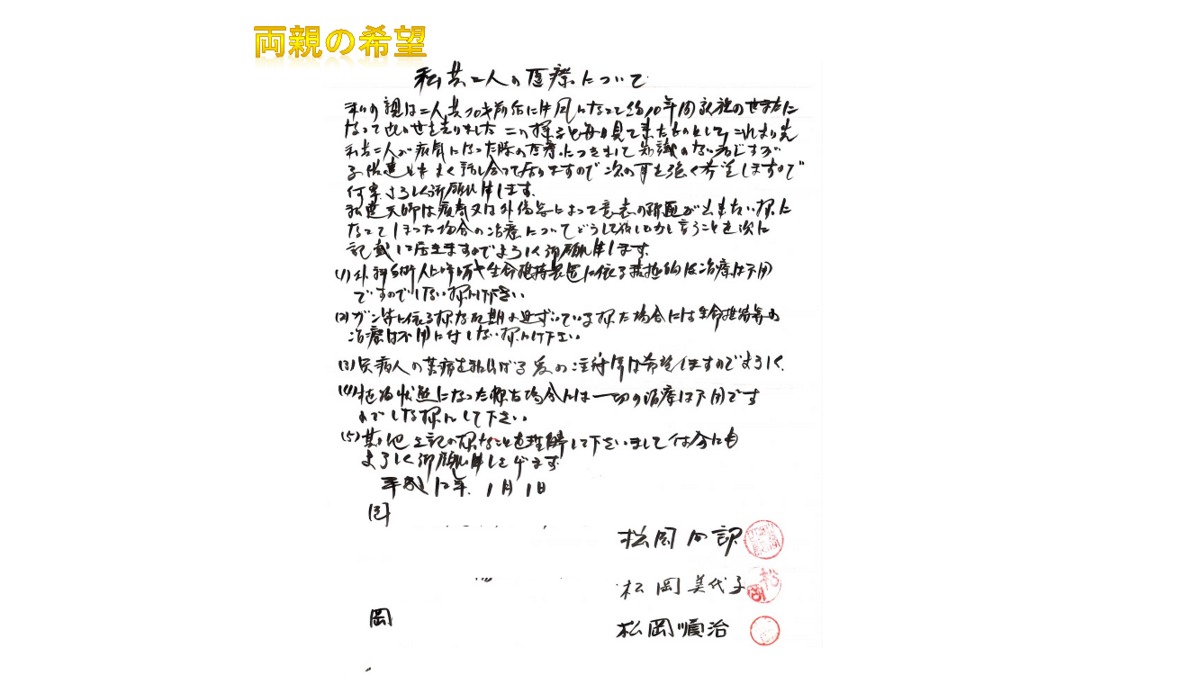 両親の希望
私共二人の医療について
私の親は二人共70才前后に中風になって約10年間家族の世話に
なって此の世を去りました この様子を毎日見て来たものとして これより先
私共二人が病気になった際の医療につきまして知識のない者ですが
子供達ともよく話し合って居りますので次の事を強く希望しますので
何卒よろしく御願い申します
私達夫婦は病気又は外傷等によって意志の疎通が出来ない様に
なってしまった場合の治療についてどうして欲しいかと言うことを次に
記載して居きますのでよろしく御願い申します
(1)外科手術人工呼吸や生命維持装置に依る積極的な治療は不用
ですのでしない様にして下さい
(2)ガン等に依る様な死期の近ずいている様な場合には生命維持等の
治療は不用に付しない様にして下さい
(3)病人の苦痛を和げる為の注射等は希望しますのでよろしく
(4)植物状態になった様な場合には一切の治療は不用です
のでしない様にして下さい
(5)其の他上記の様なことを理解して下さいまして何分にも
よろしく御願い申し上げます
平成12年 1月1日
松岡
松岡美代子
岡
松岡順治